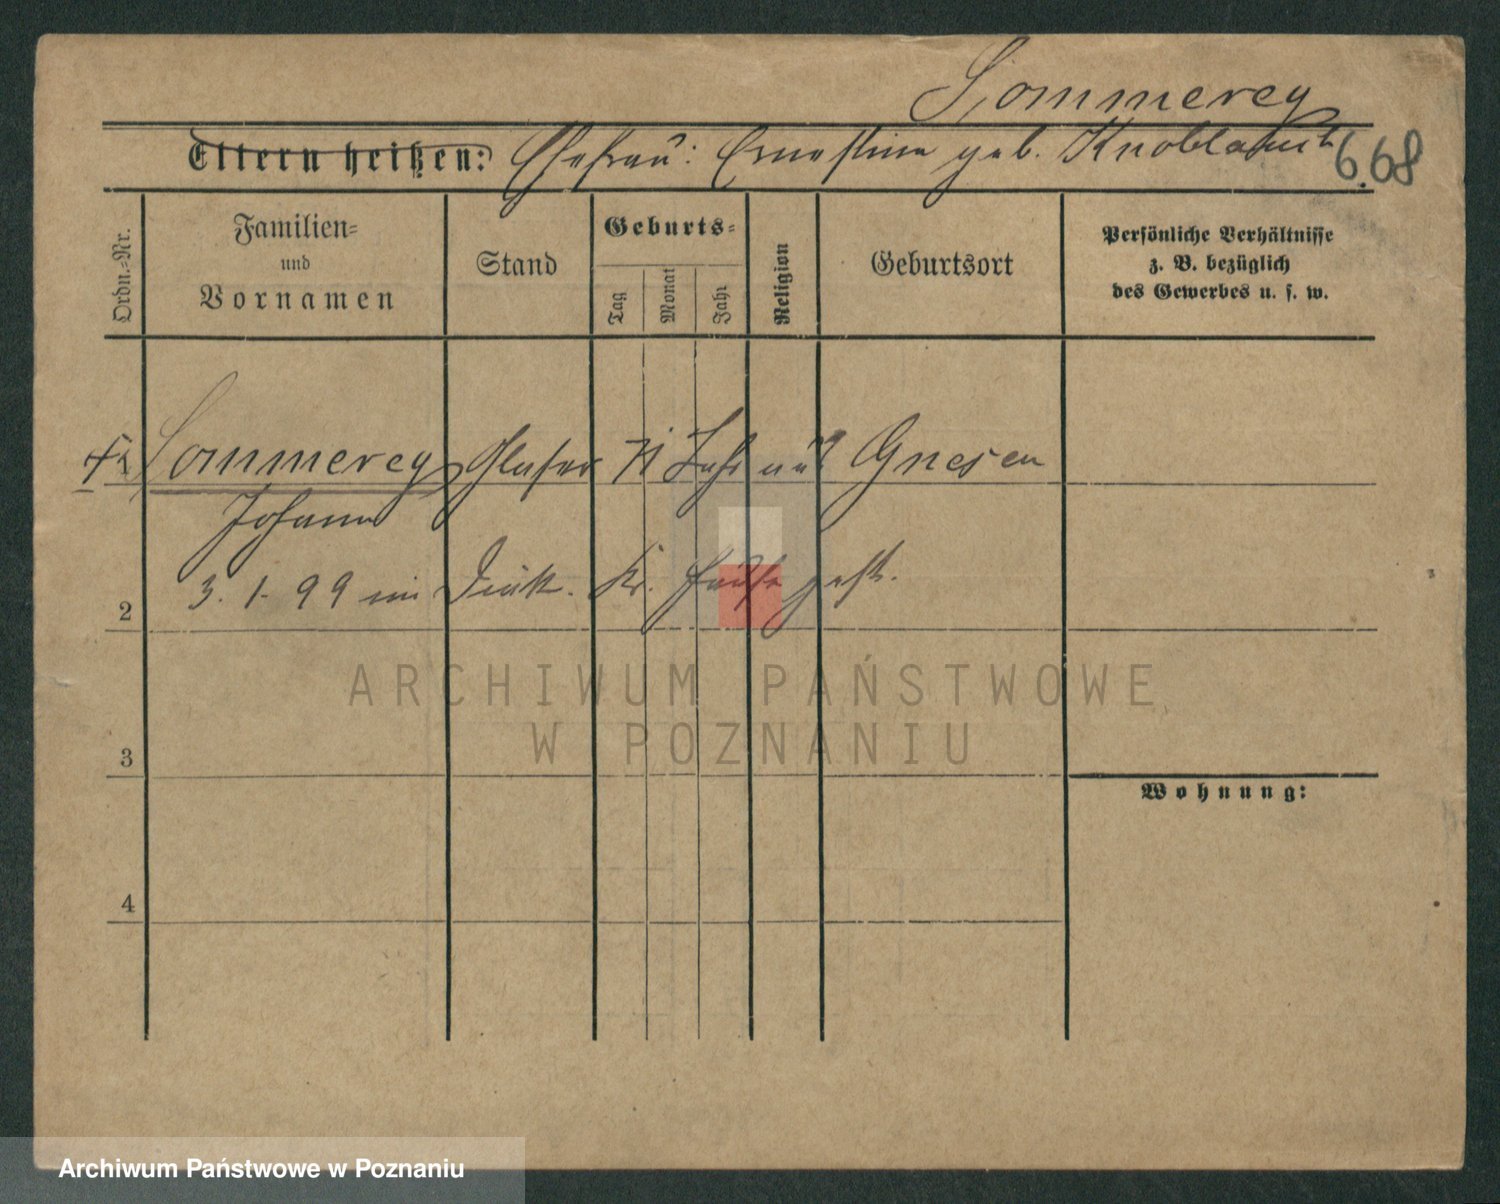 Sommerey
Eltern heißen: Ehefrau: Ernestine geb. Knoblauch
6.68
Ordn.-Nr.
Familien- und Vornamen
Stand
Geburts-
Tag
Monat
Jahr
Religion
Geburtsort
Persönliche Verhältnisse
z. B. bezüglich
des Gewerbes u. s. w.
1 Sommerey Glaser 71 Jahr alt Gnesen
Johann
3. 1. 99 im Diak. Kr. Hause gest.
2
3
Wohnung:
4
ARCHIWUM PAŃSTWOWE
W POZNANIU
Archiwum Państwowe w Poznaniu